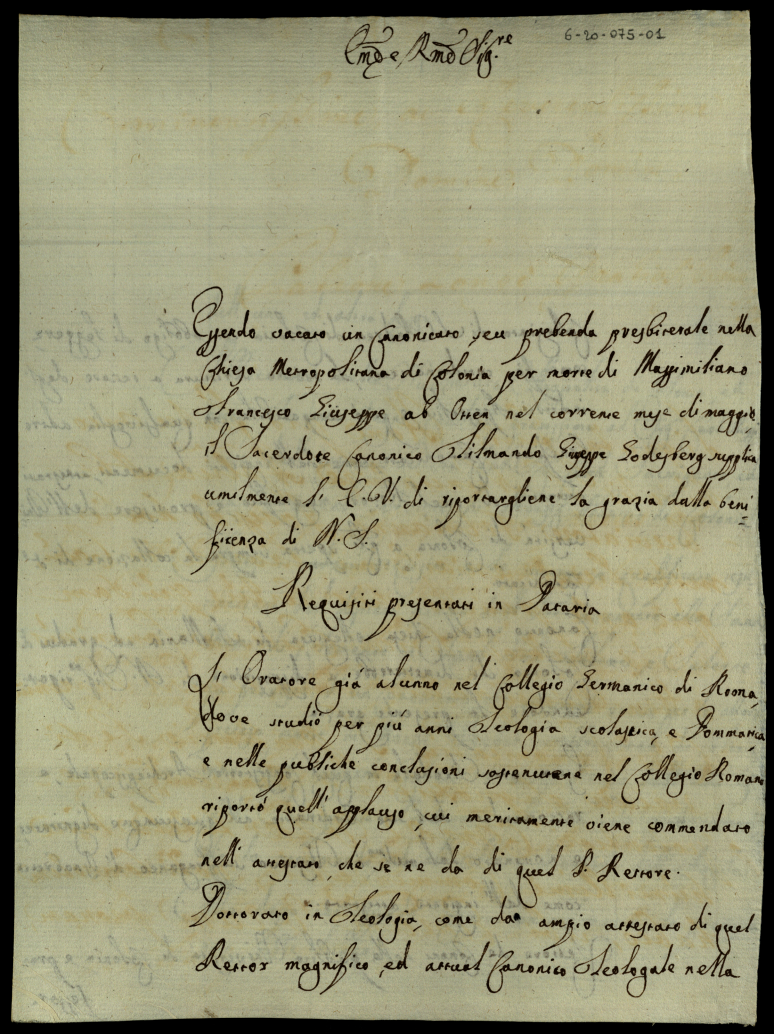 6-20-075-01
Em̃o e Rm̃o Sig.re
Essendo vacato un Canonicato, seu prebenda presbiterale nella
Chiesa Metropolitana di Colonia per morte di Massimiliano
Francesco Giuseppe ab Otten nel corrente mese di maggio,
il Sacerdote Canonico Tilmando Giuseppe Godesberg supplica
umilmente l' E.V. di riportargliene la grazia dalla beni=
ficenza di N.S.
Requisiti presentati in Dataria
L' Oratore giá alunno nel Collegio Germanico di Roma,
dove studió per piú anni Teologia scolastica, e Dommatica,
e nelle publiche conclusioni sostenutene nel Collegio Romano
riportó quell' applauso, cui meritamente viene commendato
nell' attestato, che se ne da di quel P. Rettore.
Dottorato in Teologia, come da ampio attestato di quel
Rettor magnifico, ed attual Canonico Teologale nella